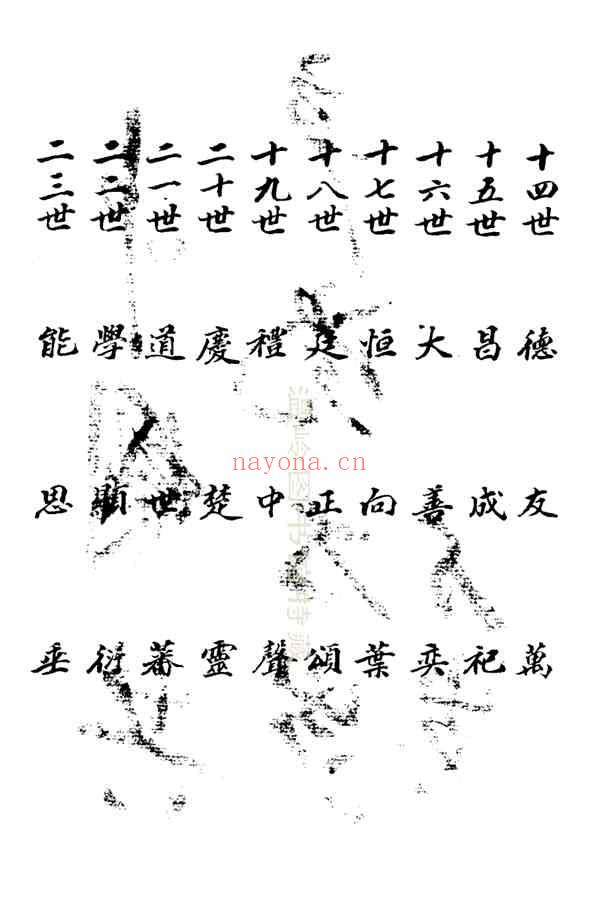 十四世 德 友 萬
十五世 昌 成 祀
十六世 大 善 奕
十七世 恒 向 葉
十八世 廷 正 頌
十九世 禮 中 聲
二十世 慶 楚 靈
二一世 道 世 蕃
二二世 學 顯 衍
二三世 能 思 垂
nayona.cn